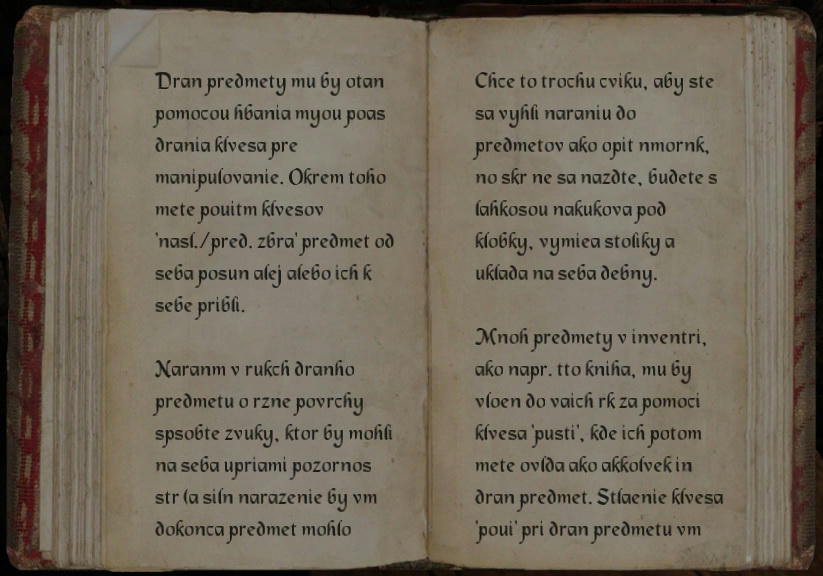 Dran predmety mu by otan
pomocou hbania myou poas
drania klvesa pre
manipulovanie. Okrem toho
mete pouitm klvesov
'nasl./pred. zbra' predmet od
seba posun alej alebo ich k
sebe pribli.
Naranm v rukch dranho
predmetu o rzne povrchy
spsobte zvuky, ktor by mohli
na seba upriami pozornos
str (a siln narazenie by vm
dokonca predmet mohlo
Chce to trochu cviku, aby ste
sa vyhli naraniu do
predmetov ako opit nmornk,
no skr ne sa nazdte, budete s
lahkosou nakukova pod
klobky, vymiea stoliky a
uklada na seba debny.
Mnoh predmety v inventri,
ako napr. tto kniha, mu by
vloen do vaich rk za pomoci
klvesa 'pusti', kde ich potom
mete ovlda ako akkolvek in
dran predmet. Stlaenie klvesa
'poui' pri dran predmetu vm